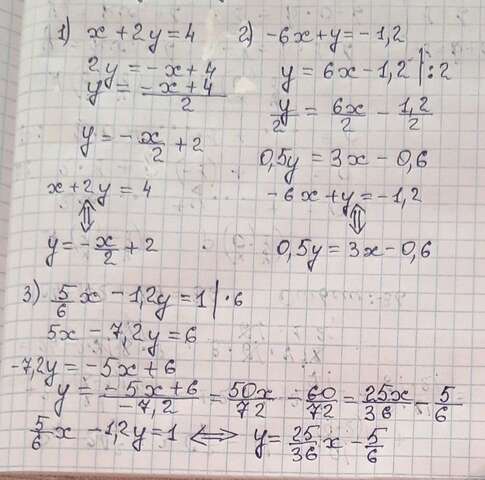 1) x + 2y = 4
2y = -x + 4
y = (-x + 4)/2
y = -x/2 + 2
x + 2y = 4
⇕
y = -x/2 + 2
2) -6x + y = -1,2
y = 6x - 1,2 | : 2
y/2 = 6x/2 - 1,2/2
0,5y = 3x - 0,6
-6x + y = -1,2
⇕
0,5y = 3x - 0,6
3) 5/6 x - 1,2y = 1 | · 6
5x - 7,2y = 6
-7,2y = -5x + 6
y = (-5x + 6)/(-7,2) = 50x/72 - 60/72 = 25x/36 - 5/6
5/6 x - 1,2y = 1 ⇔ y = 25/36 x - 5/6